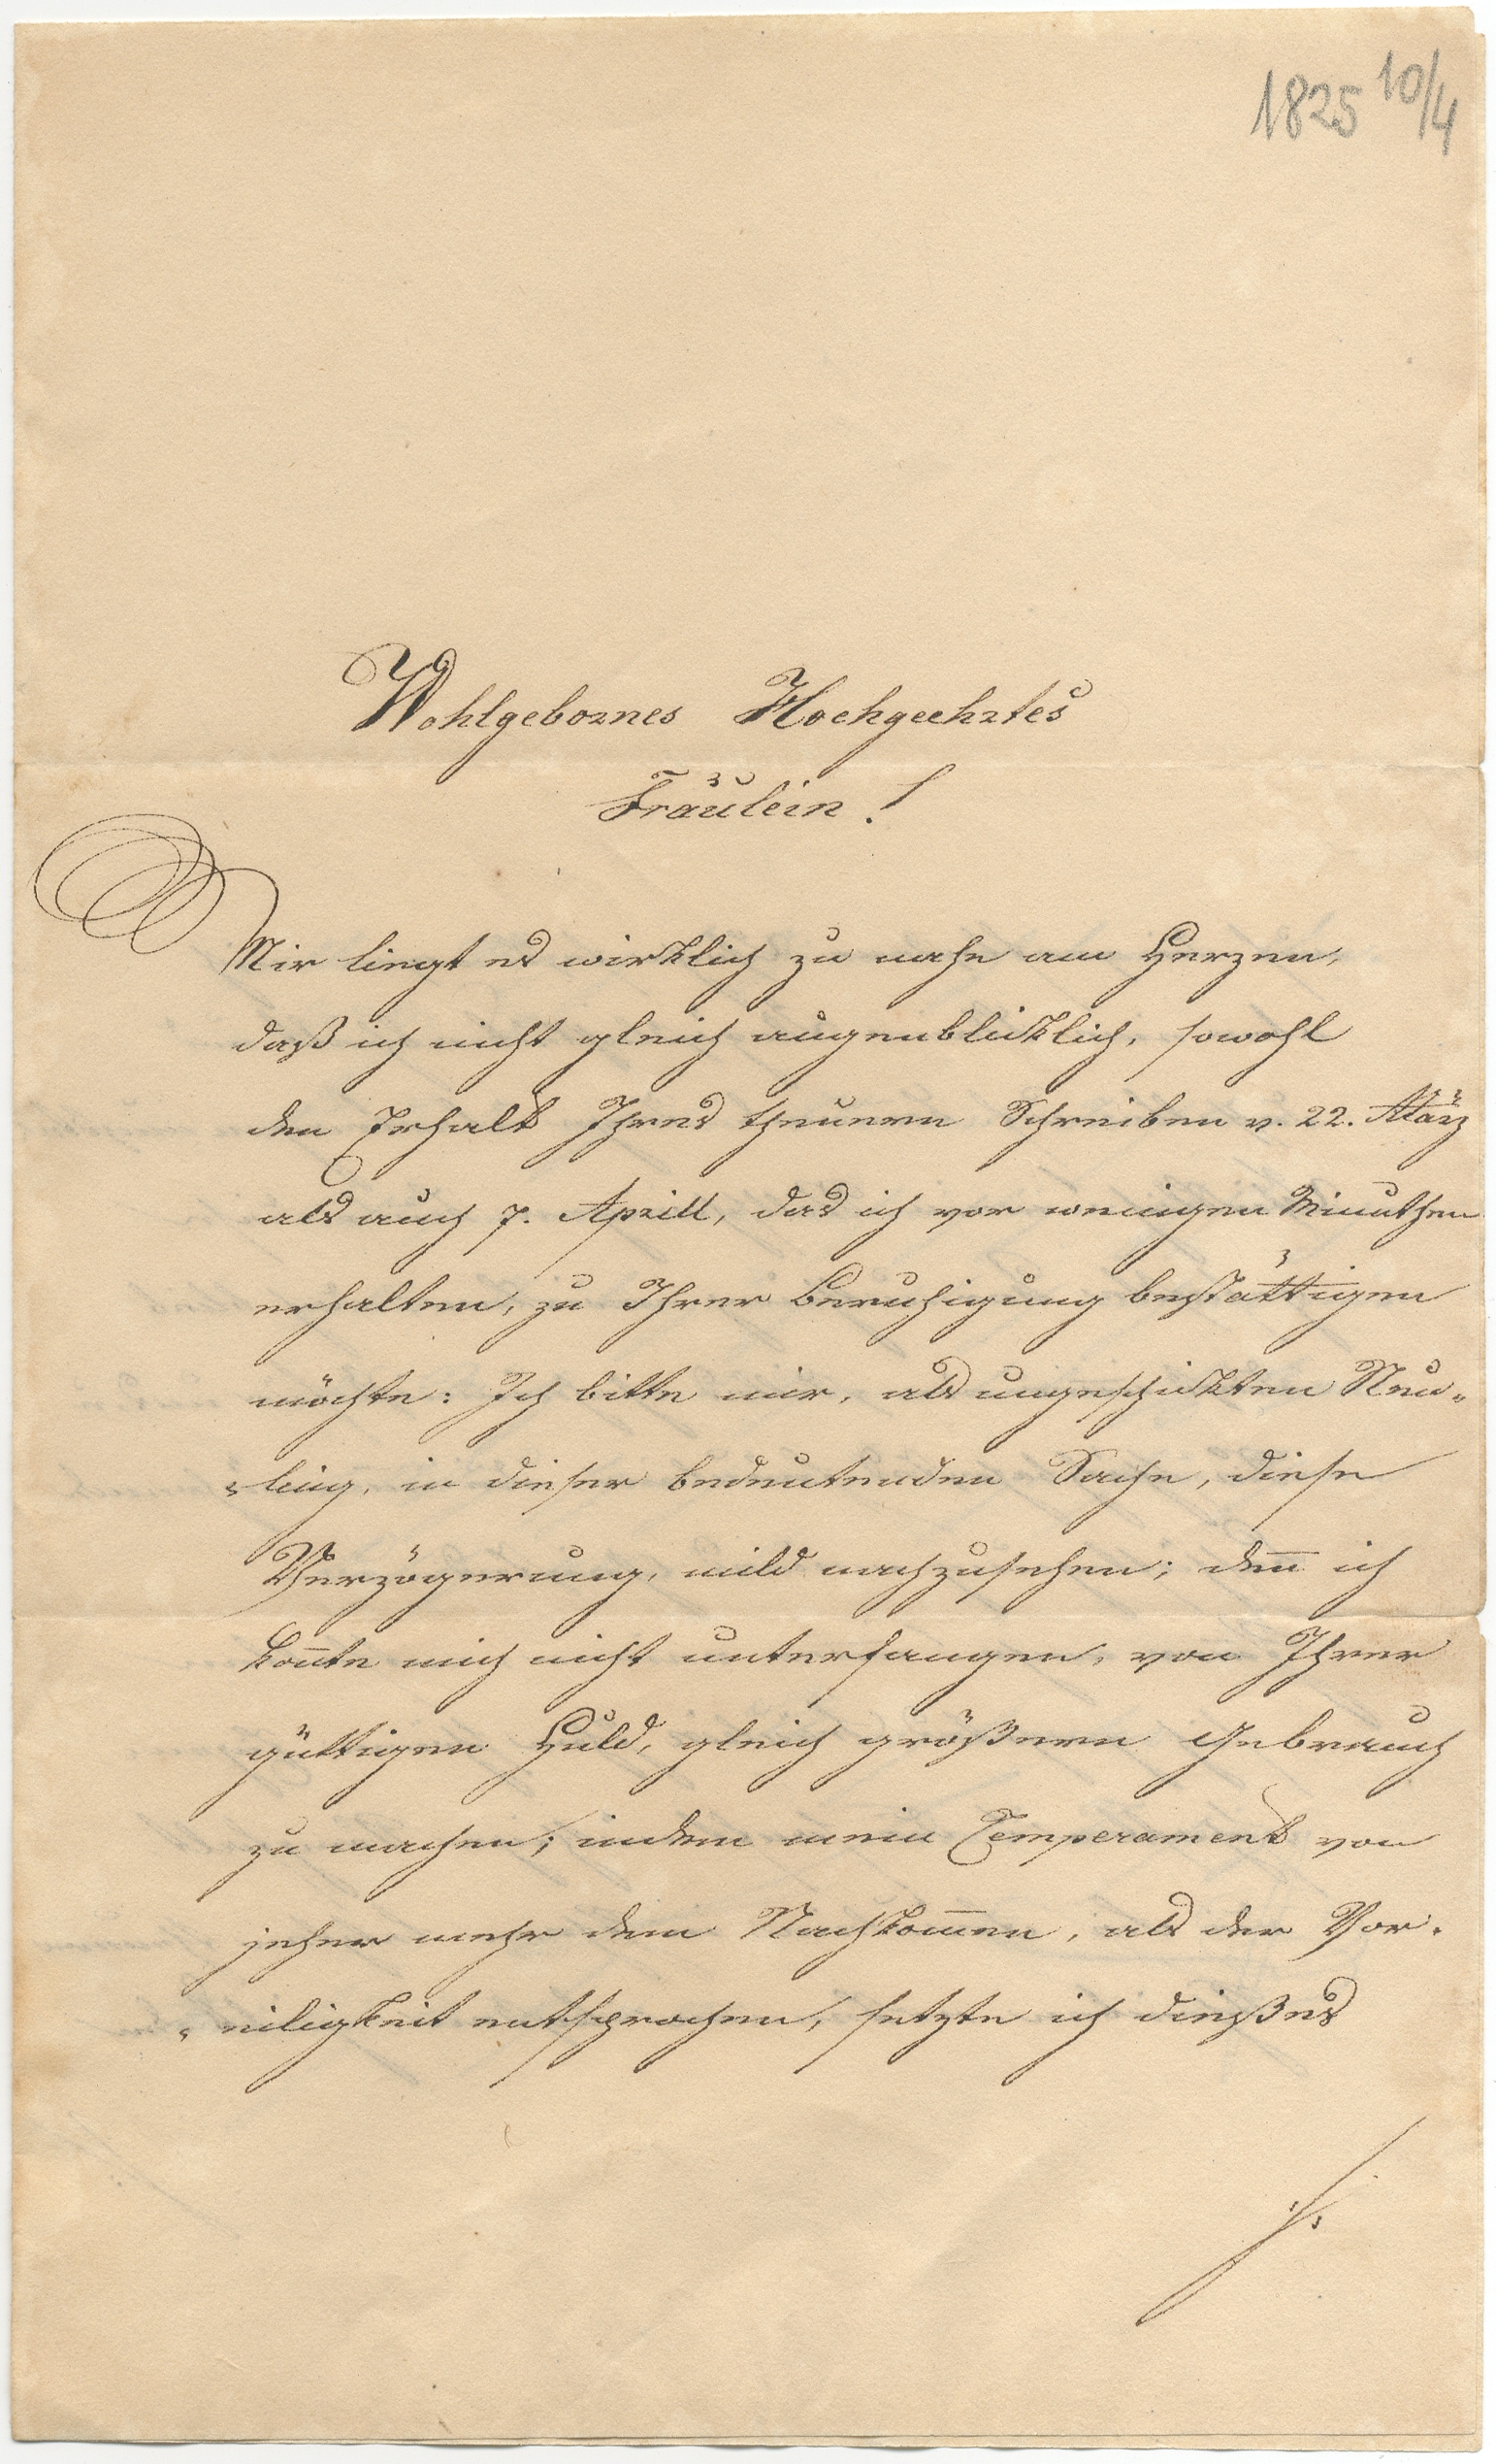 1825 10/4
Wohlgebornes Hochgeehrtes
Fräulein!
Mir liegt es wirklich zu nahe am Herzen,
daß ich nicht gleich augenblicklich, sowohl
den Erhalt Ihres theuern Schreiben v. 22. März
als auch 7. Aprill, das ich vor wenigen Minuthen
erhalten, zu Ihrer Beruhigung bestättigen
möchte: Ich bitte mir, als ungeschickten Neu„
„ling, in dieser bedeutenden Sache, diese
Verzögerung, mild nachzusehen; deñ ich
koñte mich nicht unterfangen, von Ihrer
güttigen Huld, gleich größern Gebrauch
zu machen; indem mein Temperament von
jeher mehr dem Nachkom̅en, als der Vor„
„eiligkeit entsprochen, setzte ich dießes
./.